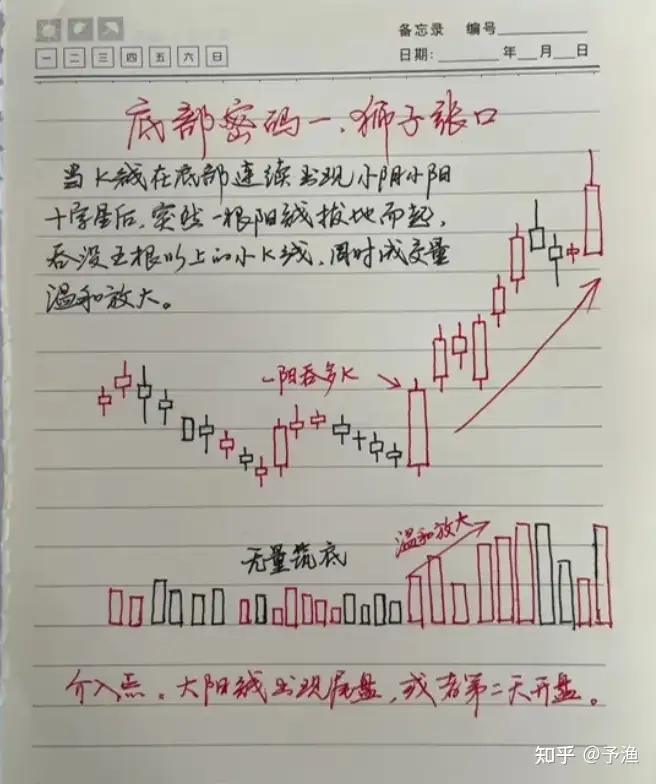 备忘录 编号
一 二 三 四 五 六 日
日期: 年 月 日
底部密码一、狮子张口
当K线在底部连续出现小阴小阳
十字星后,突然一根阳线拔地而起,
吞没五根以上的小K线,同时成交量
温和放大。
一阳吞多K
温和放大
无量筑底
介入点。大阳线出现尾盘,或者第二天开盘。
知乎 @予渔